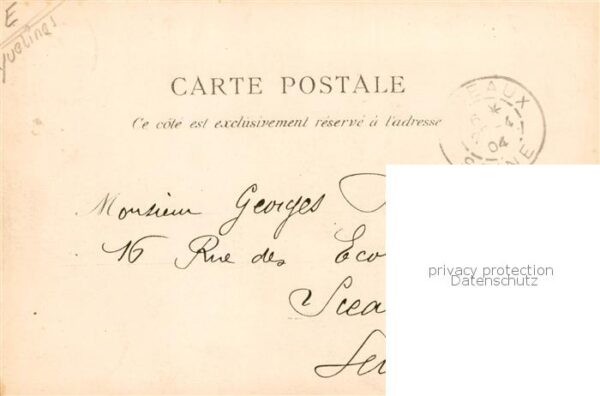 E
Yvelines
CARTE POSTALE
Ce côté est exclusivement réservé à l'adresse
EAUX
04
Monsieur Georges
16 Rue des Eco
Scea
Sei
privacy protection
Datenschutz